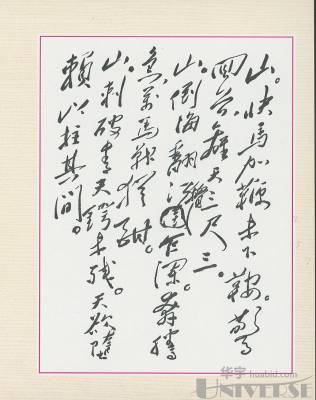 山。快馬加鞭未下鞍。驚
回首,離天三尺三。
山。倒海翻江瀾。奔騰
急,萬馬戰猶酣。
山。刺破青天鍔未殘。天欲墮
賴以拄其間。
华宇 huabid.com
UNIVERSE